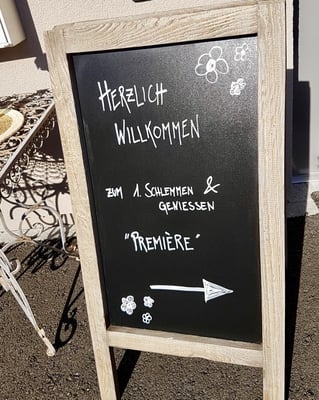 HERZLICH
WILLKOMMEN
ZUM 1. SCHLEMMEN &
GENIESSEN
"PREMIÈRE"